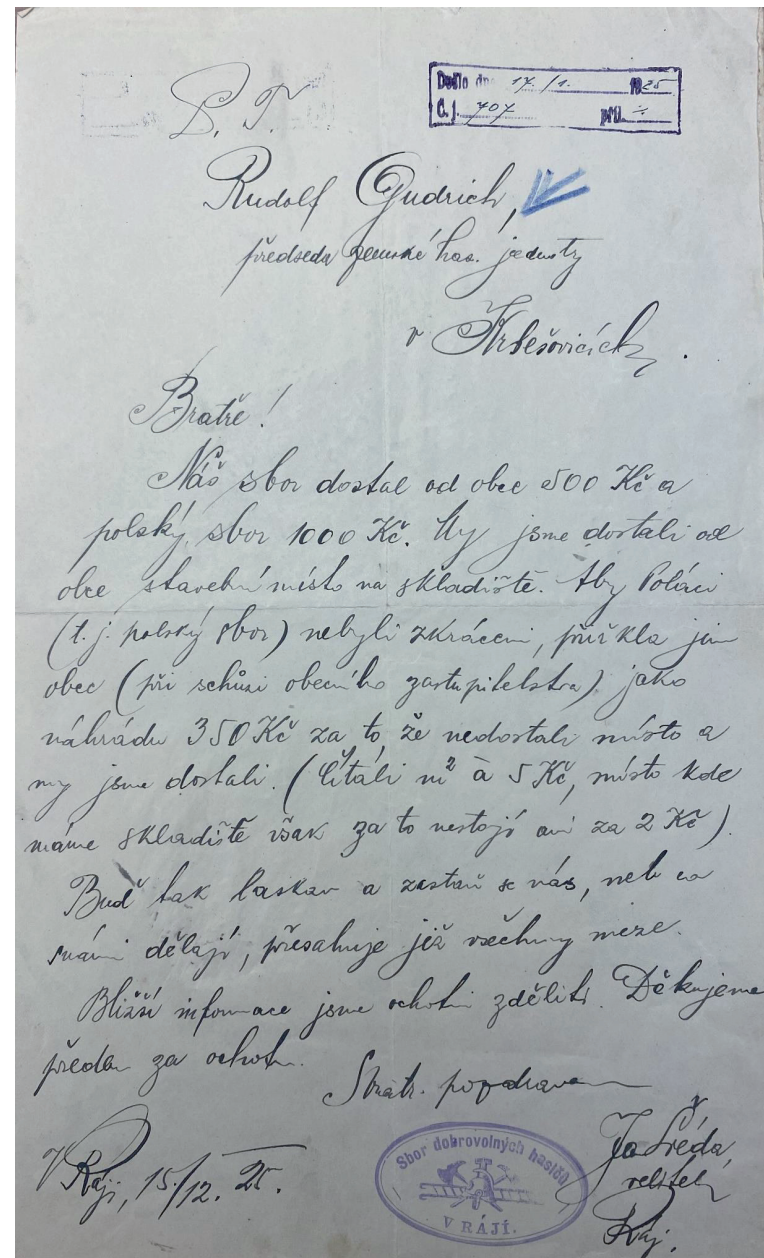 Došlo dne 17./1. 1925
Č. j. 707 příl. ÷
P. T.
Rudolf Gudrich,
předseda zemské has. jednoty
v Krbešovicích.
Bratře!
Náš sbor dostal od obce 500 Kč a
polský sbor 1000 Kč. My jsme dostali od
obce stavební místo na skladiště. Aby Poláci
(t. j. polský sbor) nebyli zkráceni, přiřkla jim
obec (při schůzi obecního zastupitelstva) jako
náhradu 350 Kč za to, že nedostali místo a
my jsme dostali. (Čítáli m² à 5 Kč, místo kde
máme skladiště však za to nestojí ani za 2 Kč).
Buď tak laskav a zastaň se nás, neb co
s námi dělají, přesahuje již všechny meze.
Bližší informace jsme ochotni zděliti. Děkujeme
předem za ochotu.
S bratr. pozdravem
V Ráji, 15/12. 25.
Sbor dobrovolných hasičů
V RÁJÍ.
Ja Šéda,
velitel,
Ráj.